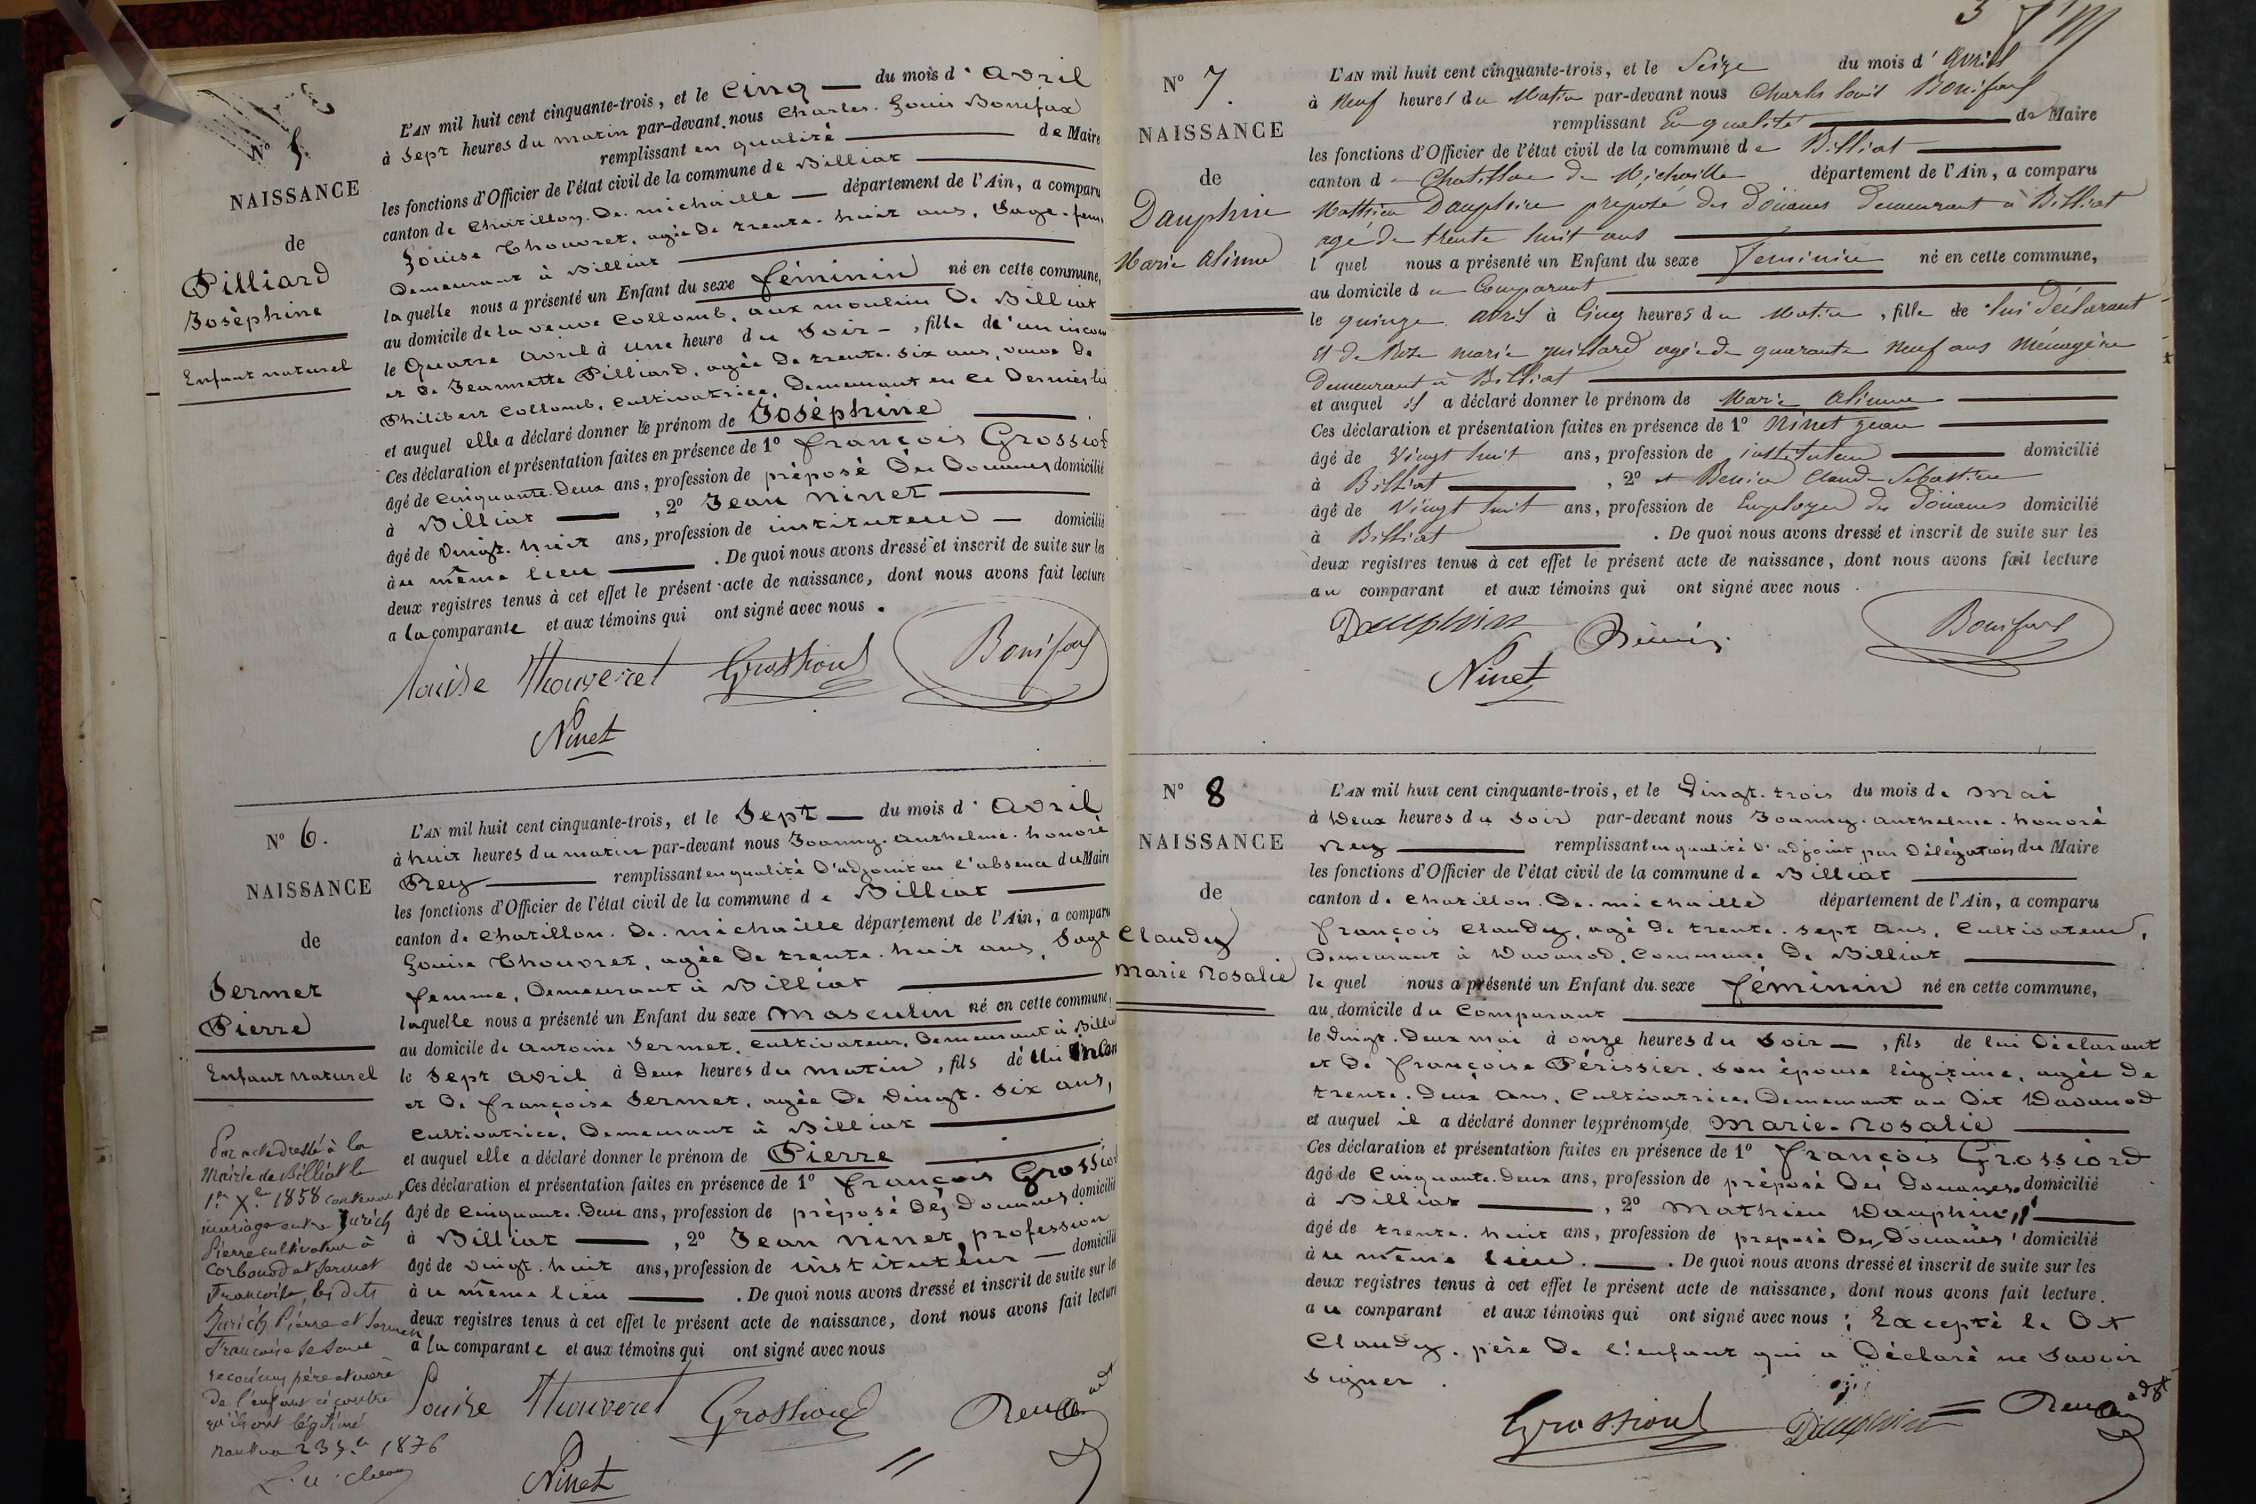 N° 5.
NAISSANCE
de
Pilliard
Joséphine
Enfant naturel
L'AN mil huit cent cinquante-trois, et le Cinq du mois d'Avril
à Sept heures du matin par-devant nous Charles Louis Bonifax
remplissant en qualité de Maire
les fonctions d'Officier de l'état civil de la commune de Billiat
canton de Chatillon. De. michaille département de l'Ain, a comparu
Louise Thouvret, agée De trente-huit ans, Sage-fem
Demeurant à Billiat
laquelle nous a présenté un Enfant du sexe féminin né en cette commune,
au domicile de la veuve Collomb, aux moulin De Billiat
le Quatre avril à une heure du Soir, fille de un incon
et de Jeannette Pilliard, agée De trente-six ans, veuve De
Philibert Collomb, Cultivatrice, Demeurant en Ce Dernier lieu
et auquel elle a déclaré donner le prénom de Joséphine
Ces déclaration et présentation faites en présence de 1° françois Grossiord
âgé de Cinquante-Deux ans, profession de préposé Des Douanes domicilié
à Billiat, 2° Jean Ninet
âgé de vingt-huit ans, profession de instituteur domicilié
au même lieu. De quoi nous avons dressé et inscrit de suite sur les
deux registres tenus à cet effet le présent acte de naissance, dont nous avons fait lecture
a la comparante et aux témoins qui ont signé avec nous.
Louise Thouveret Grossiord Bonifax
Ninet
N° 6.
NAISSANCE
de
Sermet
Pierre
Enfant naturel
Par acte dressé à la
Mairie de Billiat le
1er Xbre 1858 contenant
mariage entre Jurich
Pierre cultivateur à
Corbonod et Sermet
Françoise, les dits
Jurich Pierre et Sermet
Françoise se sont
reconnus père et mère
de l'enfant ci contre
qu'ils ont légitimé
Nantua 1876
L'AN mil huit cent cinquante-trois, et le Sept du mois d'Avril
à huit heures du matin par-devant nous Joanny. anthelme. honoré
Rey remplissant en qualité D'adjoint en l'absence du Maire
les fonctions d'Officier de l'état civil de la commune de Billiat
canton de Chatillon. De. michaille département de l'Ain, a comparu
Louise Thouvret, agée De trente-huit ans, Sage
femme, Demeurant à Billiat
laquelle nous a présenté un Enfant du sexe masculin né en cette commune,
au domicile de Antoine Sermet, Cultivateur, Demeurant à Billiat
le Sept avril à Deux heures du matin, fils de un incon
et De françoise Sermet, agée De vingt-six ans,
Cultivatrice, Demeurant à Billiat
et auquel elle a déclaré donner le prénom de Pierre
Ces déclaration et présentation faites en présence de 1° françois Grossiord
âgé de Cinquante-Deux ans, profession de préposé Des Douanes domicilié
à Billiat, 2° Jean Ninet, profession
âgé de vingt-huit ans, profession de instituteur domicilié
au même lieu. De quoi nous avons dressé et inscrit de suite sur les
deux registres tenus à cet effet le présent acte de naissance, dont nous avons fait lecture
a la comparante et aux témoins qui ont signé avec nous
Louise Thouveret Grossiord Rey adt
Ninet
3
N° 7.
NAISSANCE
de
Dauphin
Marie Alinne
L'AN mil huit cent cinquante-trois, et le Seize du mois d'avril
à Neuf heures du Matin par-devant nous Charles Louis Bonifax
remplissant En qualité de Maire
les fonctions d'Officier de l'état civil de la commune de Billiat
canton de Chatillon de Michaille département de l'Ain, a comparu
Mathieu Dauphin préposé des Douanes Demeurant à Billiat
agé de trente huit ans
lequel nous a présenté un Enfant du sexe féminin né en cette commune,
au domicile du Comparant
le quinze avril à Cinq heures du Matin, fille de lui Déclarant
et de Roze marie juillard agée de quarante neuf ans Ménagère
Demeurant à Billiat
et auquel il a déclaré donner le prénom de Marie Alinne
Ces déclaration et présentation faites en présence de 1° Ninet jean
âgé de Vingt huit ans, profession de instituteur domicilié
à Billiat, 2° et Benier Claude Sébastien
âgé de Vingt huit ans, profession de Employer des Douanes domicilié
à Billiat. De quoi nous avons dressé et inscrit de suite sur les
deux registres tenus à cet effet le présent acte de naissance, dont nous avons fait lecture
au comparant et aux témoins qui ont signé avec nous.
Dauphin Bonifax
Ninet
N° 8
NAISSANCE
de
Claudy
Marie Rosalie
L'AN mil huit cent cinquante-trois, et le vingt-trois du mois de Mai
à Deux heures du Soir par-devant nous Joanny. anthelme. honoré
Rey remplissant en qualité D'adjoint par Délégation du Maire
les fonctions d'Officier de l'état civil de la commune de Billiat
canton de Chatillon. De. michaille département de l'Ain, a comparu
françois Claudy, agé De trente-sept ans, Cultivateur,
Demeurant à Davanod, Commune De Billiat
lequel nous a présenté un Enfant du sexe féminin né en cette commune,
au domicile du Comparant
le vingt-Deux mai à onze heures du Soir, fils de lui Déclarant
et De françoise Périssier, Son épouse légitime, agée De
trente-Deux ans, Cultivatrice, Demeurant au Dit Davanod
et auquel il a déclaré donner les prénoms de Marie-Rosalie
Ces déclaration et présentation faites en présence de 1° françois Grossiord
âgé de Cinquante-Deux ans, profession de préposé Des Douanes domicilié
à Billiat, 2° Mathieu Dauphin
âgé de trente-huit ans, profession de préposé Des Douanes domicilié
au même lieu. De quoi nous avons dressé et inscrit de suite sur les
deux registres tenus à cet effet le présent acte de naissance, dont nous avons fait lecture.
au comparant et aux témoins qui ont signé avec nous; Excepté le Dit
Claudy, père De l'enfant qui a Déclaré ne Savoir
Signer.
Grossiord Dauphin Rey adt